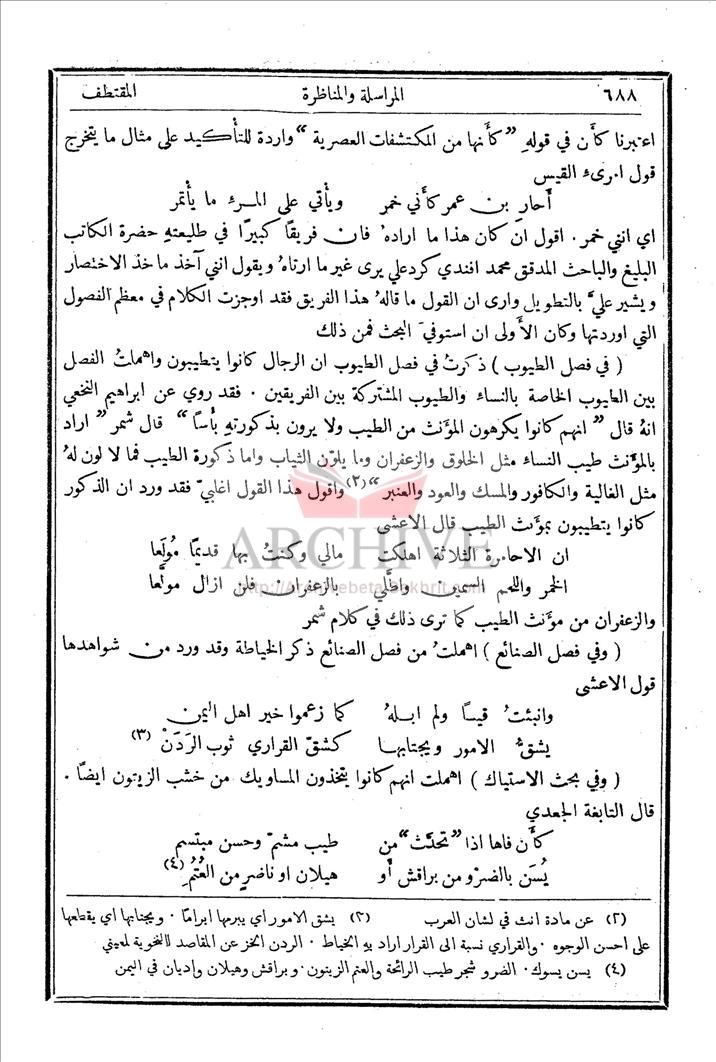 ٦٨٨ المراسلة والمناظرة المقتطف
اعتبرنا كأن في قولهِ "كأنها من المكتشفات العصرية" واردة للتأكيد على مثال ما يتخرج
قول امرىء القيس
أحار بن عمر كأني خمر ويأتي على المرء ما يأتمر
اي انني خمر . اقول ان كان هذا ما ارادهُ فان فريقًا كبيرًا في طليعتهِ حضرة الكاتب
البليغ والباحث المدقق محمد افندي كردعلي يرى غير ما ارتاهُ ويقول انني آخذ مأخذ الاختصار
ويشير عليَّ بالتطويل وارى ان القول ما قالهُ هذا الفريق فقد اوجزت الكلام في معظم الفصول
التي اوردتها وكان الأولى ان استوفي البحث فمن ذلك
( في فصل الطيوب ) ذكرتُ في فصل الطيوب ان الرجال كانوا يتطيبون واهملتُ الفصل
بين الطيوب الخاصة بالنساء والطيوب المشتركة بين الفريقين . فقد روي عن ابراهيم النخعي
انهُ قال "انهم كانوا يكرهون المؤنث من الطيب ولا يرون بذكورتهِ بأسًا" قال شمر "اراد
بالمؤنث طيب النساء مثل الخلوق والزعفران وما يلوّن الثياب واما ذكورة الطيب فما لا لون لهُ
مثل الغالية والكافور والمسك والعود والعنبر"(٢) واقول هذا القول اغلبيّ فقد ورد ان الذكور
كانوا يتطيبون بمؤنث الطيب قال الاعشى
ان الاحامرة الثلاثة اهلكت مالي وكنتُ بها قديمًا مُولَعا
الخمر واللحم السمين واطَّلي بالزعفران فلن ازال مولَّعا
والزعفران من مؤنث الطيب كما ترى ذلك في كلام شمر
( وفي فصل الصنائع ) اهملتُ من فصل الصنائع ذكر الخياطة وقد ورد من شواهدها
قول الاعشى
وانبئتُ قيسًا ولم ابلهُ كما زعموا خير اهل اليمن
يشقُّ الامور ويجتابها كشقّ القراري ثوب الرَدَنْ (٣)
( وفي بحث الاستياك ) اهملت انهم كانوا يتخذون المساويك من خشب الزيتون ايضًا .
قال النابغة الجعدي
كأن فاها اذا "تحدَّث" من طيب مشمّ وحسن مبتسم
يُسَن بالضرْو من براقش أو هيلان او ناضرٍ من العُتُمِ (٤)
(٢) عن مادة انث في لسان العرب (٣) يشق الامور اي يبرمها ابرامًا . ويجتابها اي يقطعها
على احسن الوجوه . والقراري نسبة الى القرار اراد بهِ الخياط . الردن الخز عن المقاصد النحوية للعيني
(٤) يسن يسوك . الضرو شجر طيب الرائحة والعتم الزيتون . وبراقش وهيلان واديان في اليمن
ARCHIVE